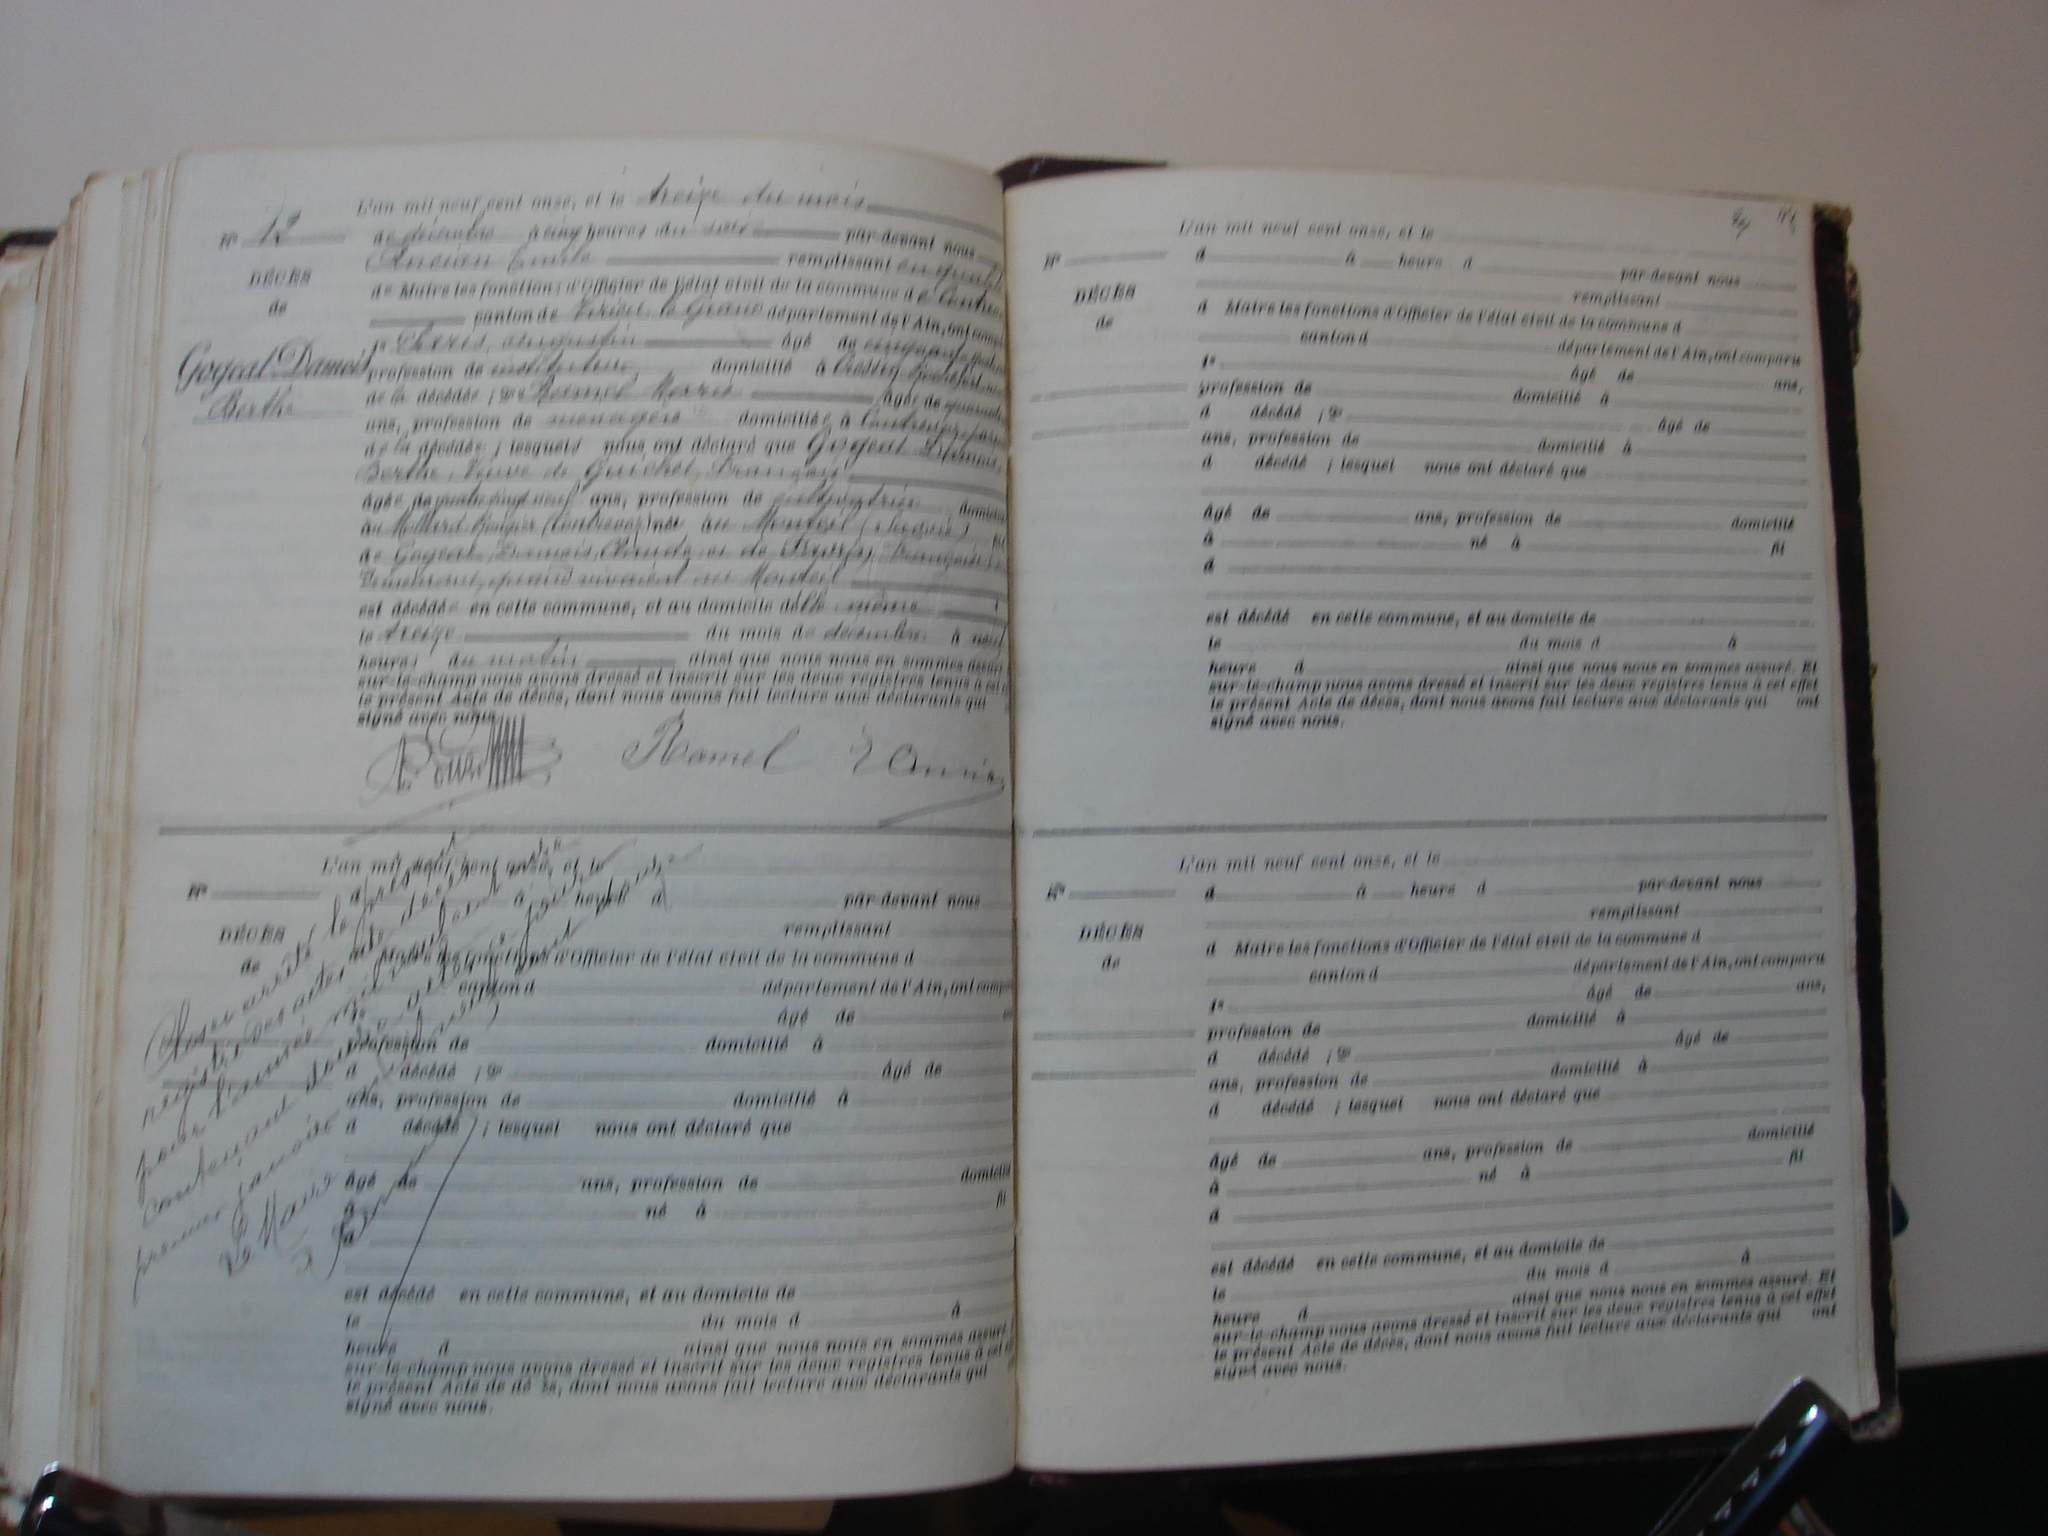 L'an mil neuf cent onze, et le treize du mois
N° 12
de décembre à cinq heures du soir par-devant nous
Ancian Emile remplissant en qualité
DÉCÈS
de Maire les fonctions d'Officier de l'état civil de la commune de Contrevoz
de
canton de Virieu-le-Grand département de l'Ain, ont comparu
1° Augustin âgé de cinquante
Gogeat Damois
profession de instituteur domicilié à
de la décédée ; 2° Ramel Marie âgée de quarante
Berthe
ans, profession de ménagère domiciliée à Contrevoz
de la décédée ; lesquels nous ont déclaré que Gogeat Damois
Berthe, veuve de Guichet François
âgée de quatre vingt neuf ans, profession de cultivatrice domiciliée
au (Contrevoz) née au Monteil
de Gogeat Damois, Claude et de Françoise
quand vivaient au Monteil
est décédée en cette commune, et au domicile d'elle-même
le treize du mois de décembre à neuf
heures du matin ainsi que nous nous en sommes assuré
sur-le-champ nous avons dressé et inscrit sur les deux registres tenus à cet
le présent Acte de décès, dont nous avons fait lecture aux déclarants qui
signé avec nous.
Ramel
L'an mil neuf cent onze, et le
N°
d à heure d par-devant nous
remplissant
DÉCÈS
de
Maire les fonctions d'Officier de l'état civil de la commune d
canton d département de l'Ain, ont comparu
âgé de
profession de domicilié à
d décédé ; 2° âgé de
ans, profession de domicilié à
d décédé ; lesquel nous ont déclaré que
âgé de ans, profession de domicilié
à né à fil
d
est décédé en cette commune, et au domicile de
le du mois d à
heure d ainsi que nous nous en sommes assuré
sur-le-champ nous avons dressé et inscrit sur les deux registres tenus à cet
le présent Acte de décès, dont nous avons fait lecture aux déclarants qui
signé avec nous.
Clos et arrêté le présent
registre des actes de décès
pour l'année mil neuf cent onze
contenant douze actes
premier janvier mil neuf cent douze
Le Maire
L'an mil neuf cent onze, et le
N°
d à heure d par-devant nous
remplissant
DÉCÈS
d Maire les fonctions d'Officier de l'état civil de la commune d
de
canton d département de l'Ain, ont comparu
1° âgé de ans,
profession de domicilié à
d décédé ; 2° âgé de
ans, profession de domicilié à
d décédé ; lesquel nous ont déclaré que
âgé de ans, profession de domicilié
à né à fil
d
est décédé en cette commune, et au domicile de
le du mois d à
heure d ainsi que nous nous en sommes assuré. Et
sur-le-champ nous avons dressé et inscrit sur les deux registres tenus à cet effet
le présent Acte de décès, dont nous avons fait lecture aux déclarants qui ont
signé avec nous.
L'an mil neuf cent onze, et le
N°
d à heure d par-devant nous
remplissant
DÉCÈS
d Maire les fonctions d'Officier de l'état civil de la commune d
de
canton d département de l'Ain, ont comparu
1° âgé de ans,
profession de domicilié à
d décédé ; 2° âgé de
ans, profession de domicilié à
d décédé ; lesquel nous ont déclaré que
âgé de ans, profession de domicilié
à né à fil
d
est décédé en cette commune, et au domicile de
le du mois d à
heure d ainsi que nous nous en sommes assuré. Et
sur-le-champ nous avons dressé et inscrit sur les deux registres tenus à cet effet
le présent Acte de décès, dont nous avons fait lecture aux déclarants qui ont
signé avec nous.